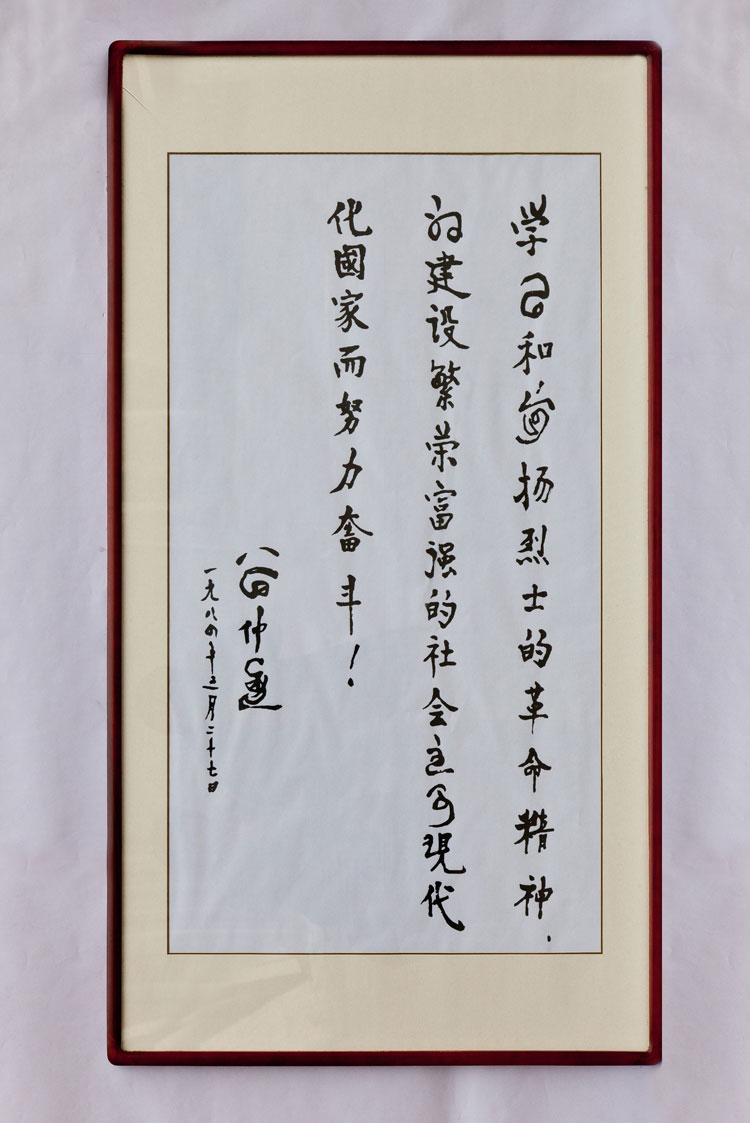 学习和发扬烈士的革命精神、
为建设繁荣富强的社会主义現代
化國家而努力奋斗！
谷仲
一九八四年三月二十七日